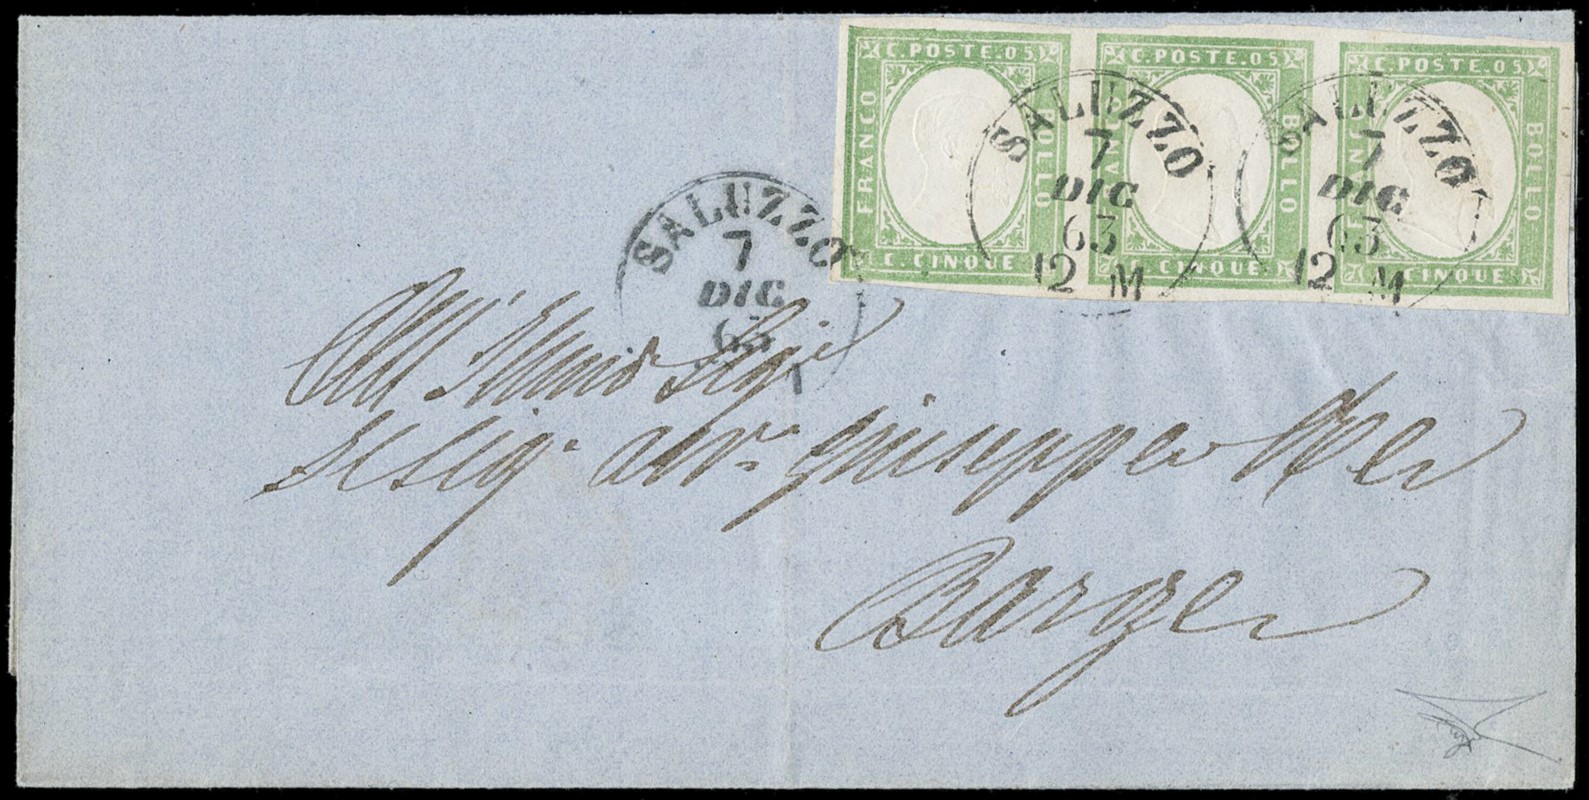 C. POSTE. 05 C. POSTE. 05 C. POSTE. 05
FRANCO BOLLO BOLLO BOLLO
C. CINQUE C. CINQUE C. CINQUE
SALUZZO
7
DIC
63
12 M
SALUZZO
7
DIC
63
12 M
SALUZZO
7
DIC
63
All' Sigr
Giuseppe
Barge